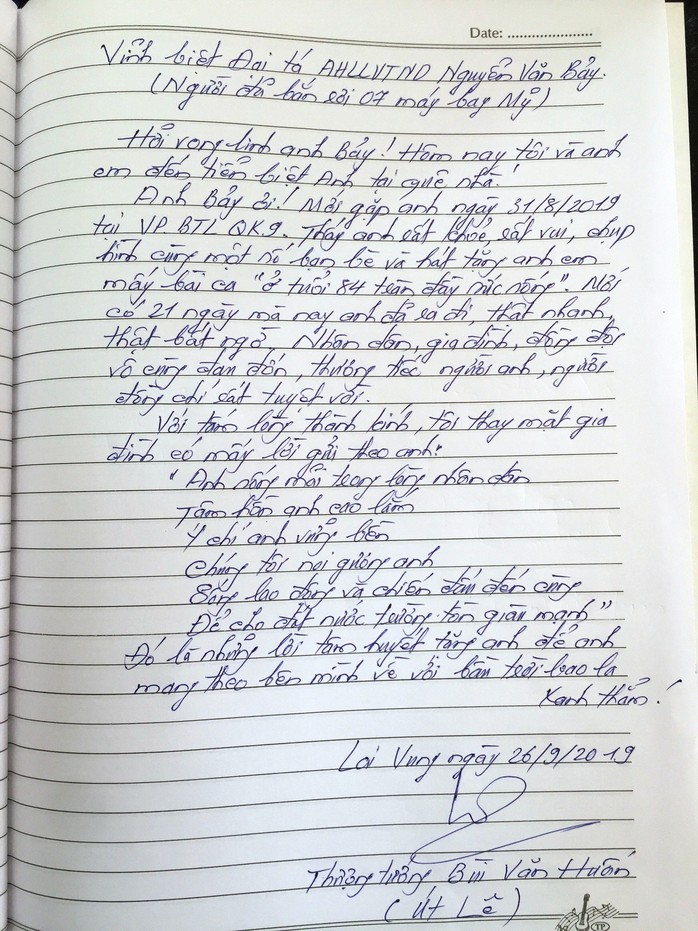 Date: ......................
Vĩnh biệt Đại tá AHLLVTND Nguyễn Văn Bảy.
(Người đã bắn rơi 07 máy bay Mỹ)
Hỡi vong linh anh Bảy! Hôm nay tôi và anh
em đến tiễn biệt Anh tại quê nhà!
Anh Bảy ơi! Mới gặp anh ngày 31/8/2019
tại VP BTL QK9. Thấy anh rất khỏe, rất vui, chụp
hình cùng một số bạn bè và hát tặng anh em
mấy bài ca "ở tuổi 84 tràn đầy sức sống". Mới
có 21 ngày mà nay anh đã ra đi, thật nhanh,
thật bất ngờ. Nhân dân, gia đình, đồng đội
vô cùng đau đớn, thương tiếc người anh, người
đồng chí rất tuyệt vời.
Với tấm lòng thành kính, tôi thay mặt gia
đình có mấy lời gửi theo anh:
"Anh sống mãi trong lòng nhân dân
Tâm hồn anh cao lắm
Ý chí anh vững bền
Chúng tôi noi gương anh
Sống lao động và chiến đấu đến cùng
Để cho đất nước trường tồn giàu mạnh"
Đó là những lời tâm huyết tặng anh để anh
mang theo bên mình về với bầu trời bao la
xanh thẳm!
Lai Vung ngày 26/9/2019
Thượng tướng Bùi Văn Huấn
(Út Lê)
TP